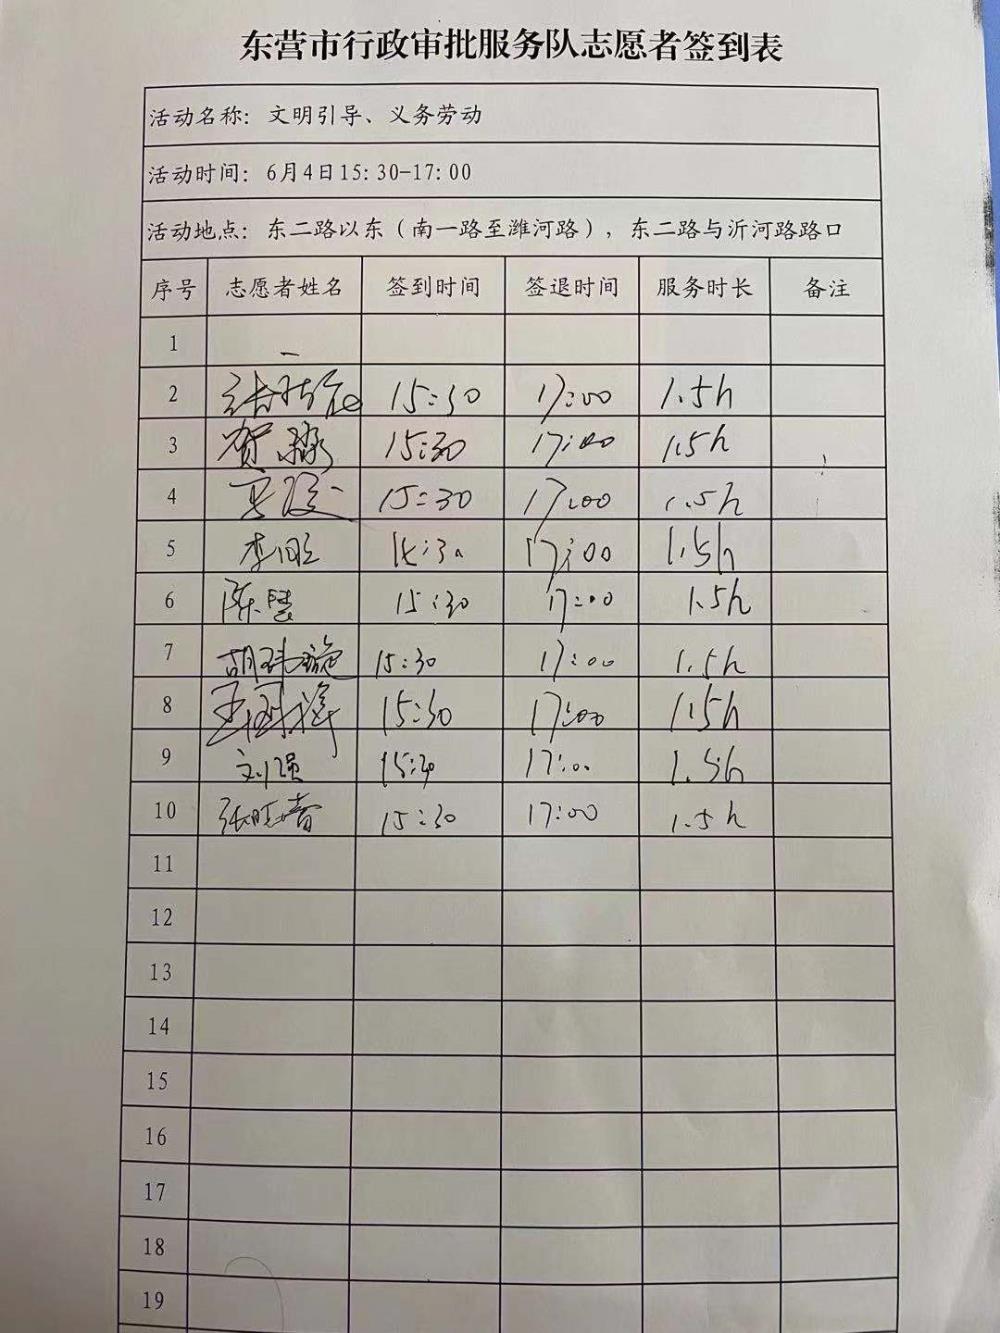 东营市行政审批服务队志愿者签到表
活动名称：文明引导、义务劳动
活动时间：6月4日15:30-17:00
活动地点：东二路以东（南一路至潍河路），东二路与沂河路路口
序号 志愿者姓名 签到时间 签退时间 服务时长 备注
1
2 15:30 17:00 1.5h
3 贺 15:30 17:00 1.5h
4 15:30 17:00 1.5h
5 李 15:30 17:00 1.5h
6 陈慧 15:30 17:00 1.5h
7 胡 15:30 17:00 1.5h
8 王 15:30 17:00 1.5h
9 刘强 15:30 17:00 1.5h
10 张晓 15:30 17:00 1.5h
11
12
13
14
15
16
17
18
19